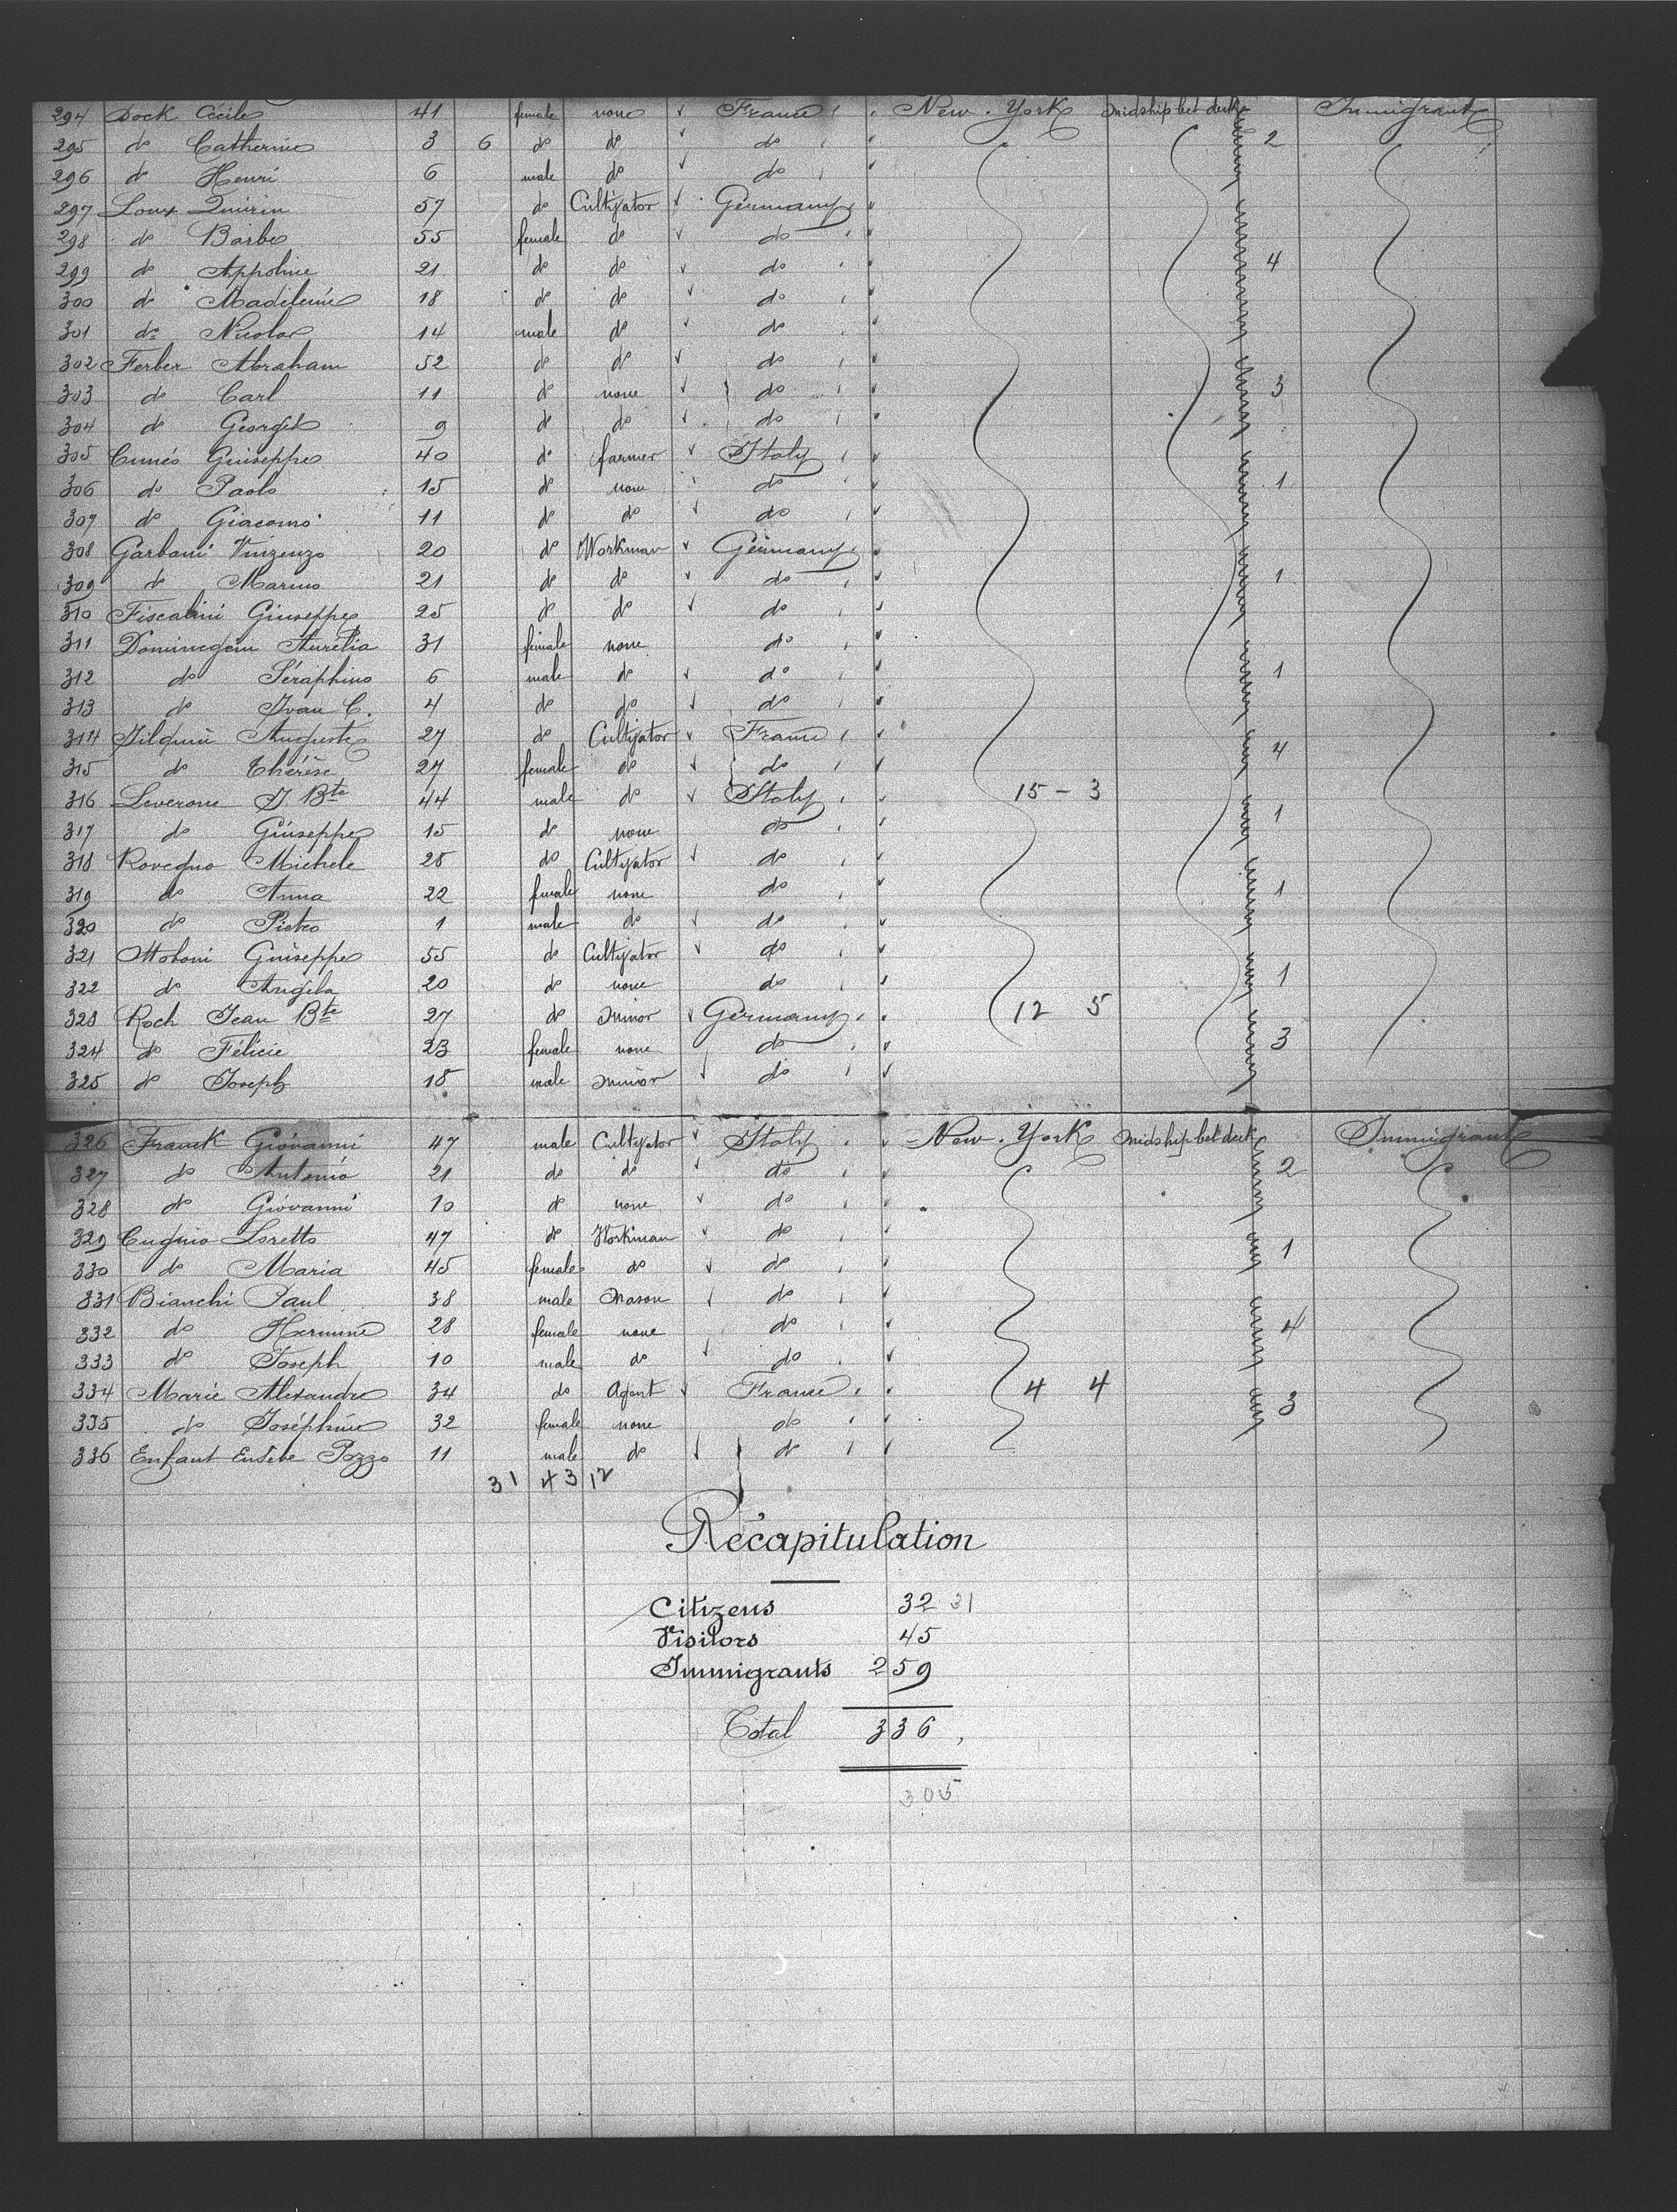 294 Dock Cécile 41 female none France New-York midship bet deck Immigrant
295 do Catherine 3 6 do do do 2
296 do Henri 6 male do do
297 Loux Quirin 57 do Cultivator Germany
298 do Barbe 55 female do do
299 do Appoline 21 do do do 4
300 do Madeleine 18 do do do
301 do Nicolas 14 male do do
302 Ferber Abraham 52 do do do
303 do Carl 11 do none do 3
304 do Georges 9 do do do
305 Cuneo Giuseppe 40 do farmer Italy
306 do Paolo 15 do none do 1
307 do Giacomo 11 do do do
308 Garbani Vinzenzo 20 do Workman Germany
309 do Marino 21 do do do 1
310 Fiscalini Giuseppe 25 do do do
311 Aurelia 31 female none do
312 do Séraphino 6 male do do 1
313 do Ivan C. 4 do do do
314 Auguste 27 do Cultivator France 4
315 do Thérèse 27 female do do
316 Leverone J Bte 44 male do Italy 15 - 3
317 do Giuseppe 15 do none do 1
318 Rovegno Michele 28 do Cultivator do
319 do Anna 22 female none do 1
320 do Pietro 1 male do do
321 Giuseppe 55 do Cultivator do
322 do Angela 20 do none do 1
323 Roch Jean Bte 27 do minor Germany 12 5
324 do Félicie 23 female none do 3
325 do Joseph 18 male minor do
326 Franck Giovanni 47 male Cultivator Italy New-York midship bet deck Immigrant
327 do Antonio 21 do do do 2
328 do Giovanni 10 do none do
329 Cugnio Loretto 47 do Workman do 1
330 do Maria 45 female do do
331 Bianchi Paul 38 male mason do
332 do Hermine 28 female none do 4
333 do Joseph 10 male do do
334 Marie Alexandre 34 do Agent France 4 4
335 do Joséphine 32 female none do 3
336 Enfant Eusèbe Pozzo 11 male do do
31 43 12
Récapitulation
Citizens 32 31
Visitors 45
Immigrants 259
Total 336
305